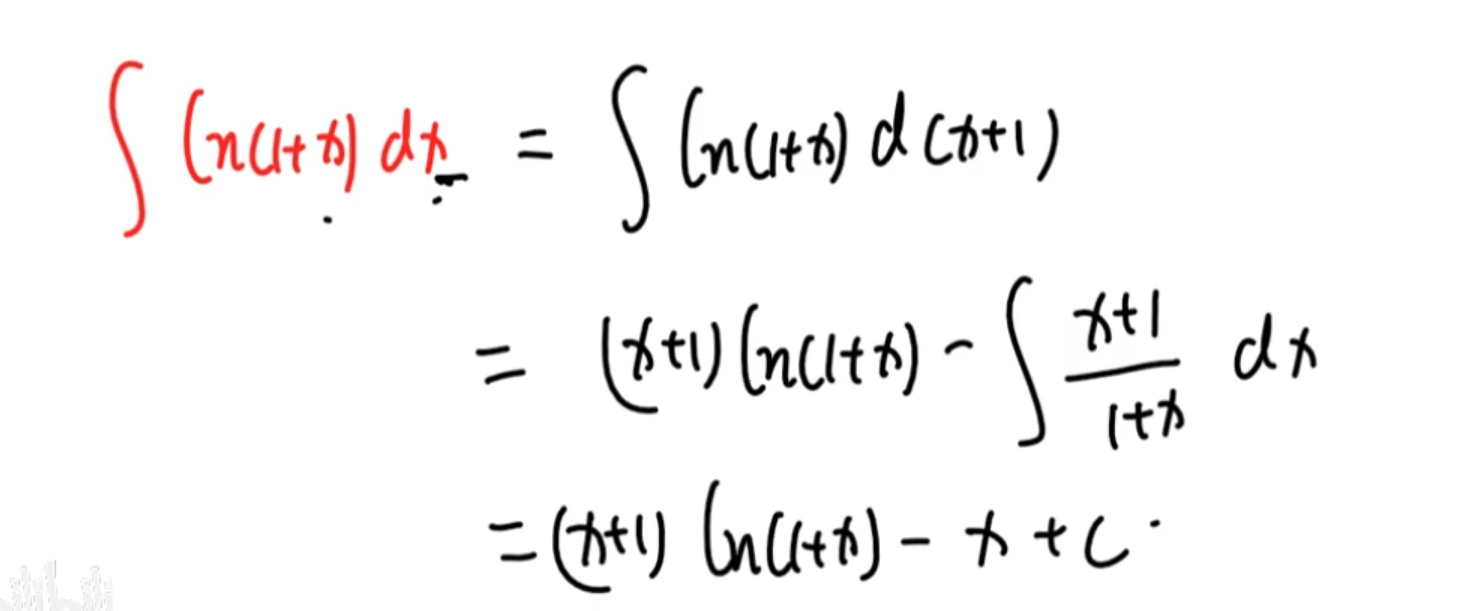 ∫ ln(1+x) dx = ∫ ln(1+x) d(x+1)
= (x+1) ln(1+x) - ∫ \frac{x+1}{1+x} dx
= (x+1) ln(1+x) - x + C.